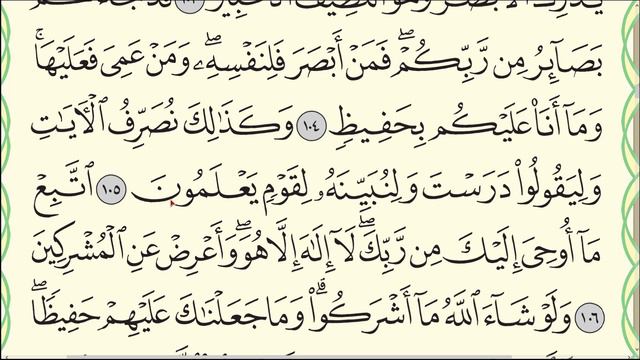 بَصَآئِرُ مِن رَّبِّكُمْ ۖ فَمَنْ أَبْصَرَ فَلِنَفْسِهِۦ ۖ وَمَنْ عَمِىَ فَعَلَيْهَا ۚ
وَمَآ أَنَا۠ عَلَيْكُم بِحَفِيظٍ ١٠٤ وَكَذَٰلِكَ نُصَرِّفُ ٱلْـَٔايَٰتِ
وَلِيَقُولُوا۟ دَرَسْتَ وَلِنُبَيِّنَهُۥ لِقَوْمٍ يَعْلَمُونَ ١٠٥ ٱتَّبِعْ
مَآ أُوحِىَ إِلَيْكَ مِن رَّبِّكَ ۖ لَآ إِلَٰهَ إِلَّا هُوَ ۖ وَأَعْرِضْ عَنِ ٱلْمُشْرِكِينَ
١٠٦ وَلَوْ شَآءَ ٱللَّهُ مَآ أَشْرَكُوا۟ ۗ وَمَا جَعَلْنَٰكَ عَلَيْهِمْ حَفِيظًا ۖ